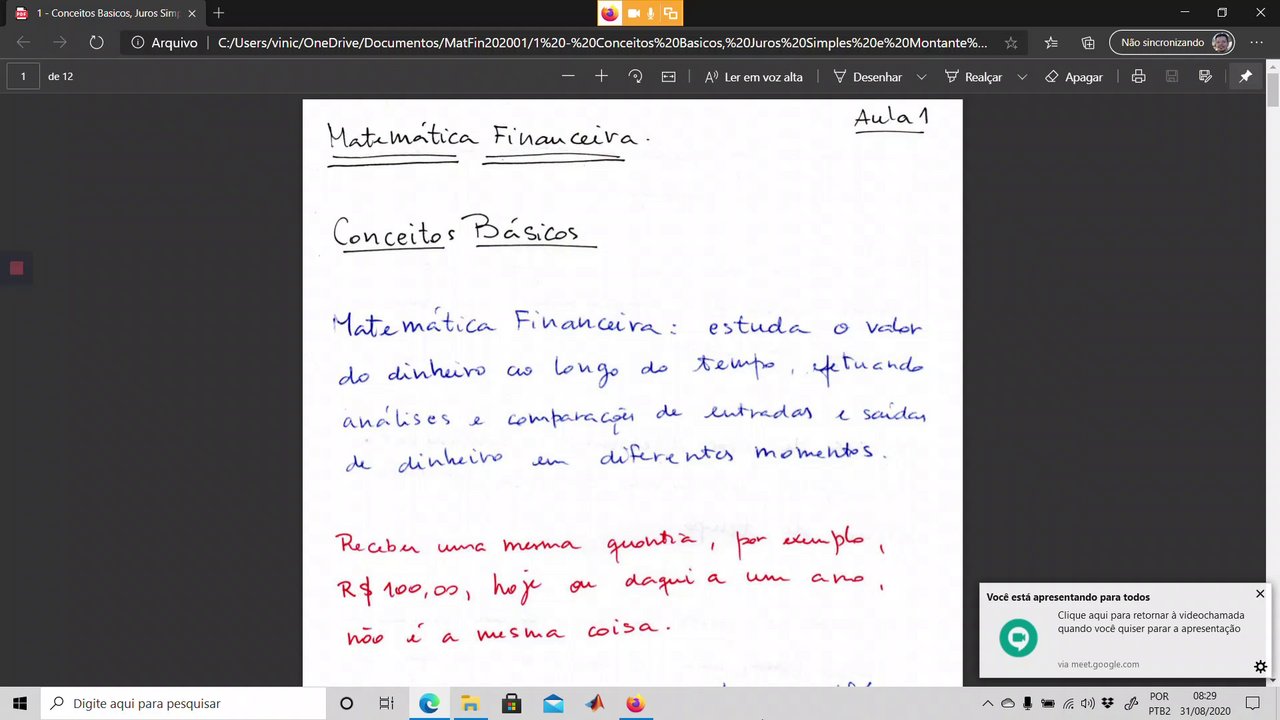 1 - Conceitos Basicos, Juros Sim
Arquivo
C:/Users/vinic/OneDrive/Documentos/MatFin202001/1%20-%20Conceitos%20Basicos,%20Juros%20Simples%20e%20Montante%...
Não sincronizando
1
de 12
Ler em voz alta
Desenhar
Realçar
Apagar
Aula 1
Matemática Financeira.
Conceitos Básicos
Matemática Financeira: estuda o valor
do dinheiro ao longo do tempo, efetuando
análises e comparações de entradas e saídas
de dinheiro em diferentes momentos.
Receber uma mesma quantia, por exemplo,
R$ 100,00, hoje ou daqui a um ano,
não é a mesma coisa.
Você está apresentando para todos
Clique aqui para retornar à videochamada
quando você quiser parar a apresentação
via meet.google.com
Digite aqui para pesquisar
POR
PTB2
08:29
31/08/2020